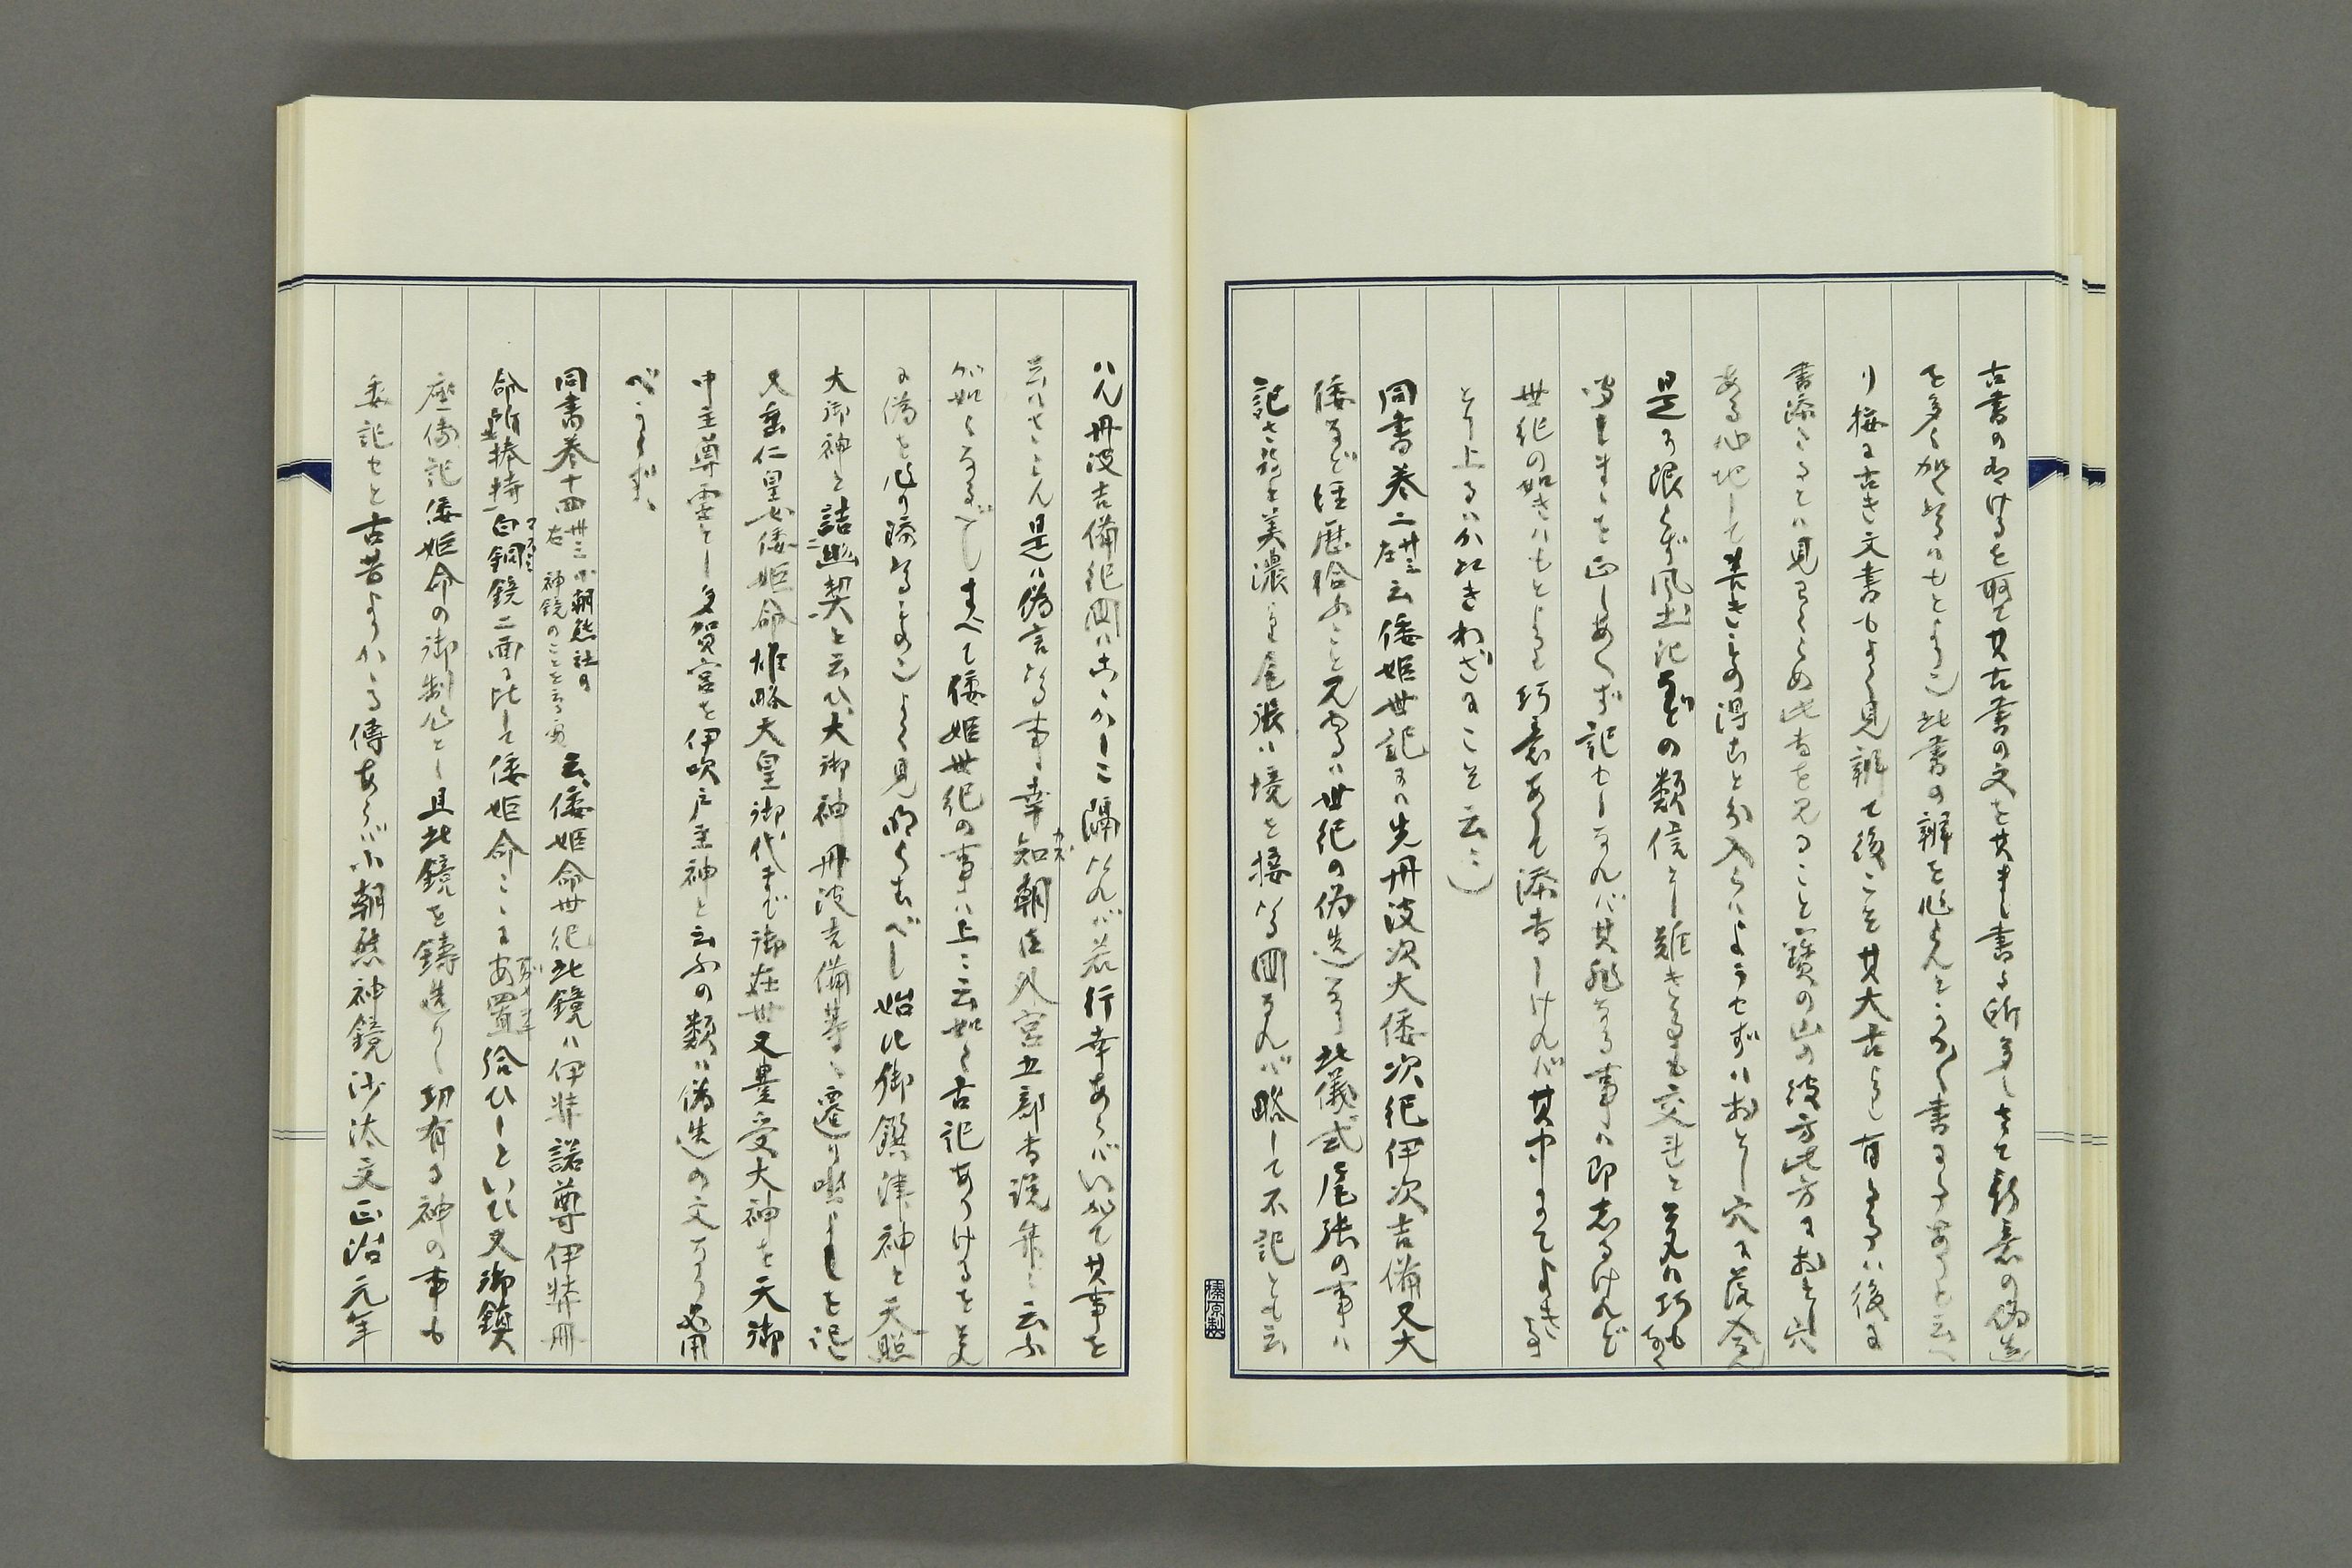 古書の有けるを取て其古書の文を其まゝ書る所多しさて新意の偽造
を多く加へたるハもとより也此書の辨を作らんとならバ書ようあるを云ハ
り採に古き文書もよく見辨て後こそ其大古よりも有しよりハ後に
書添たるとハ見ゆらめ此書を見ること寶の山の彼方此方におとし穴
ある心地して若きもの得物と分入らバようせずハおとし穴に落入らん
是に限らず風土記などの類信とし難き書も交れど其ハ巧もなく
聞しまゝを正しあへず記せしなれバ其非なる事ハ即しるけれど
世紀の如きハもとより巧意ありて添書しけれバ其中にてよき事
とり上るハかたきわざにこそ云々）
同書巻二廿三左云倭姫世記にハ先丹波次大倭次紀伊次吉備又大
倭など経歴給ふこと見ゆるハ世紀の偽造なり此儀式尾張の事ハ
記さゞるを美濃と尾張ハ境を接たる国なれバ略して不記とも云
ハん丹波吉備紀国ハはるかに隔たれバ若行幸あらバいかで其事を
云ハさらん是ハ偽言なる事幸知朝臣外宮五部書説弁ニ云ふ
が如くなるべしすべて倭姫世紀の事ハ上ニ云如く古記ありけるを基
に偽を作り添たるもの也よく見明らむべし始に御饌津神と天照
大御神と詰幽契と云ひ大御神丹波吉備等ニ遷り坐しゝを記
又垂仁皇女倭姫命雄略天皇御代まで御在世又豊受大神を天御
中主尊霊とし多賀宮を伊吹戸主神と云ふの類ハ偽造の文なり必用
べからず、
同書巻十四廿三右小朝熊社の神鏡のことを云条云、倭姫命世紀此鏡ハ伊弉諾尊伊弉冊
命所捧持白銅鏡二面に比して倭姫命こゝにあ置給ひしといひ又御鎮
座傳記倭姫命の御制作とし且此鏡を鋳造りし功有る神の事も
委記せど古昔よりかゝる傳あらバ小朝熊神鏡沙汰文正治元年
榛原製